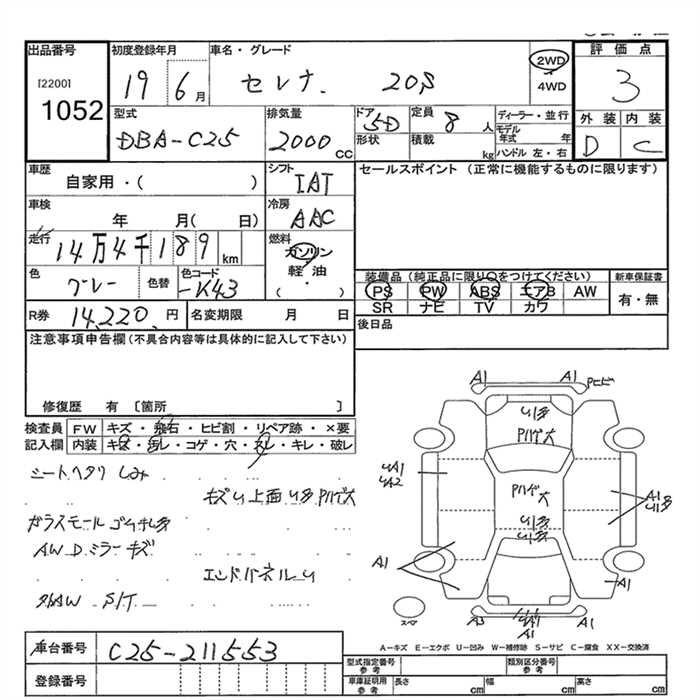 出品番号 初度登録年月 車名・グレード 2WD 評価点
[2200] 19 6月 セレナ 20S 4WD 3
1052 型式 排気量 ドア 定員 ディーラー・並行 外装 内装
DBA-C25 2000 CC 5D 8人 モデル年式 年 D C
形状 積載 kg ハンドル 左・右
車歴 シフト セールスポイント (正常に機能するものに限ります)
自家用・( ) IAT
車検 冷房
年 月( 日) AAC
走行 燃料
14万4千189 km ガソリン
軽油
・
( )
色 色替 色コード 装備品 (純正品に限り〇をつけてください) 新車保証書
グレー -K43 PS PW ABS エアB AW 有・無
SR ナビ TV カワ
R券 14,220 円 名変期限 月 日 後日品
注意事項申告欄(不具合内容等は具体的に記入して下さい)
修復歴 有 〔箇所 〕
検査員 FW キズ・飛石・ヒビ割・リペア跡・×要
記入欄 内装 キズ・汚レ・コゲ・穴・スレ・キレ・破レ
シートヘタリ しみ
キズU 上面 U多 PハゲE大
ガラスモール
AW Dミラーキズ
エンドパネルU
S/T
A1 A1
U多
Pハゲ大
UA1
UA2
Pハゲ大
U多
U多
A1
U多
A1
A1
A3 A1
A1
スペア
A-キズ E-エクボ U-凹み W-補修跡 S-サビ C-腐食 XX-交換済
車台番号 C25-211553
登録番号
型式指定番号 参考 類別区分番号 参考
車庫証明用 参考 長さ cm 幅 cm 高さ cm